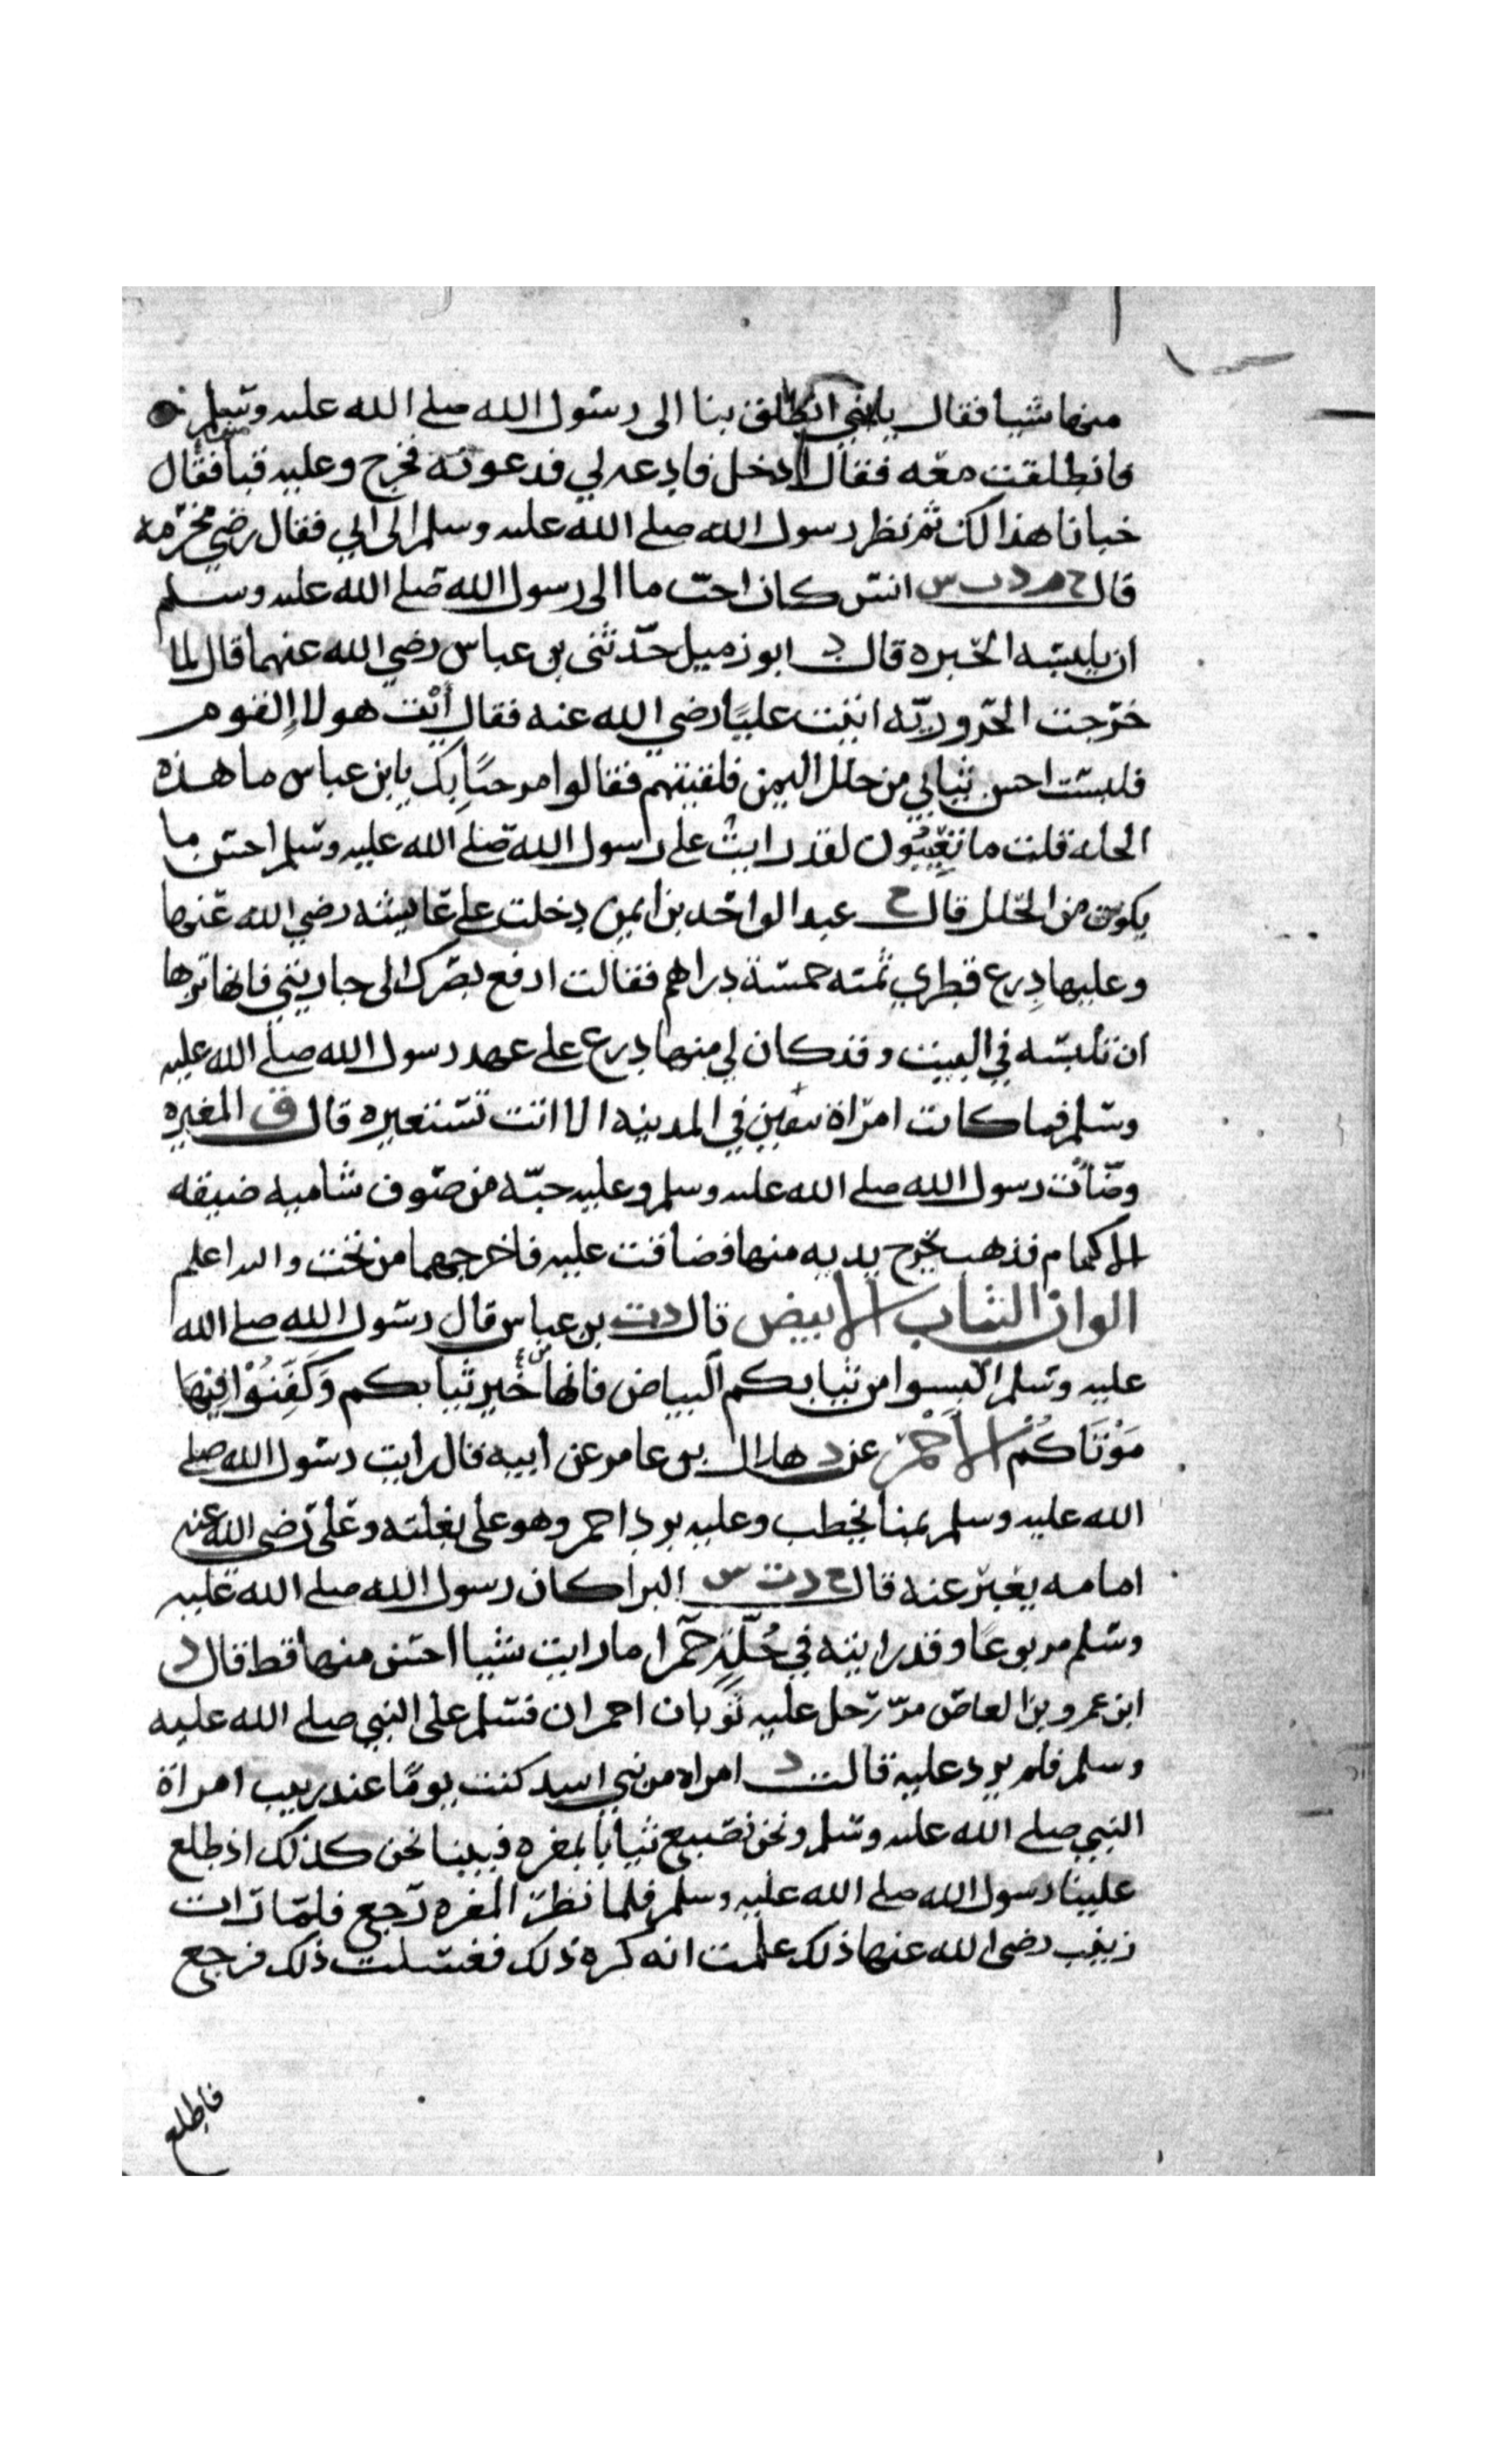 منها شيا فقال يا بني انطلق بنا الى رسول الله صلى الله عليه وسلم
فانطلقت معه فقال ادخل فادعه لي فدعوته فخرج وعليه قبا فقال
خبانا هذا لك ثم نظر رسول الله صلى الله عليه وسلم الى ابي فقال رضي مخرمه
قال خ م د ت س انس كان احب ما الى رسول الله صلى الله عليه وسلم
ان يلبسه الحبره قال د ابو زميل حدثني بن عباس رضي الله عنهما قال لما
خرجت الحروريه اتيت عليا رضي الله عنه فقال ائت هولاء القوم
فلبست احسن ثيابي من حلل اليمن فلقيتهم فقالوا مرحبا بك يا بن عباس ما هذه
الحله قلت ما تعيبون لقد رايت على رسول الله صلى الله عليه وسلم احسن ما
يكون من الحلل قال خ عبد الواحد بن ايمن دخلت على عايشه رضي الله عنها
وعليها درع قطري ثمنه خمسة دراهم فقالت ارفع بصرك الى جاريتي فانها تزها
ان تلبسه في البيت وقد كان لي منها درع على عهد رسول الله صلى الله عليه
وسلم فما كانت امراة تقين في المدينه الا اتت تستعيره قال ق المغيره
وضأت رسول الله صلى الله عليه وسلم وعليه جبة من صوف شاميه ضيقه
الاكمام فذهب يخرج يديه منها فضاقت عليه فاخرجهما من تحت والله اعلم
الوان الثياب الابيض قال د ت بن عباس قال رسول الله صلى الله
عليه وسلم البسوا من ثيابكم البياض فانها من خير ثيابكم وكفنوا فيها
موتاكم الاحمر عن د هلال بن عامر عن ابيه قال رايت رسول الله صلى
الله عليه وسلم بمنا يخطب وعليه برد احمر وهو على بغلته وعلى رضى الله عنه
امامه يعبر عنه قال خ د ت س البرا كان رسول الله صلى الله عليه
وسلم مربوعا وقد رايته في حلة حمرا ما رايت شيا احسن منها قط قال د
ابن عمرو بن العاص مر رجل عليه ثوبان احمران فسلم على النبي صلى الله عليه
وسلم فلم يرد عليه قالت د امراه من بني اسد كنت يوما عند زينب امراة
النبي صلى الله عليه وسلم ونحن نصبيغ ثيابا بمغره فبينا نحن كذلك اذ طلع
علينا رسول الله صلى الله عليه وسلم فلما نظر المغره رجع فلما رات
زينب رضى الله عنها ذلك علمت انه كره ذلك فغسلت ذلك فرجع
فاطلع